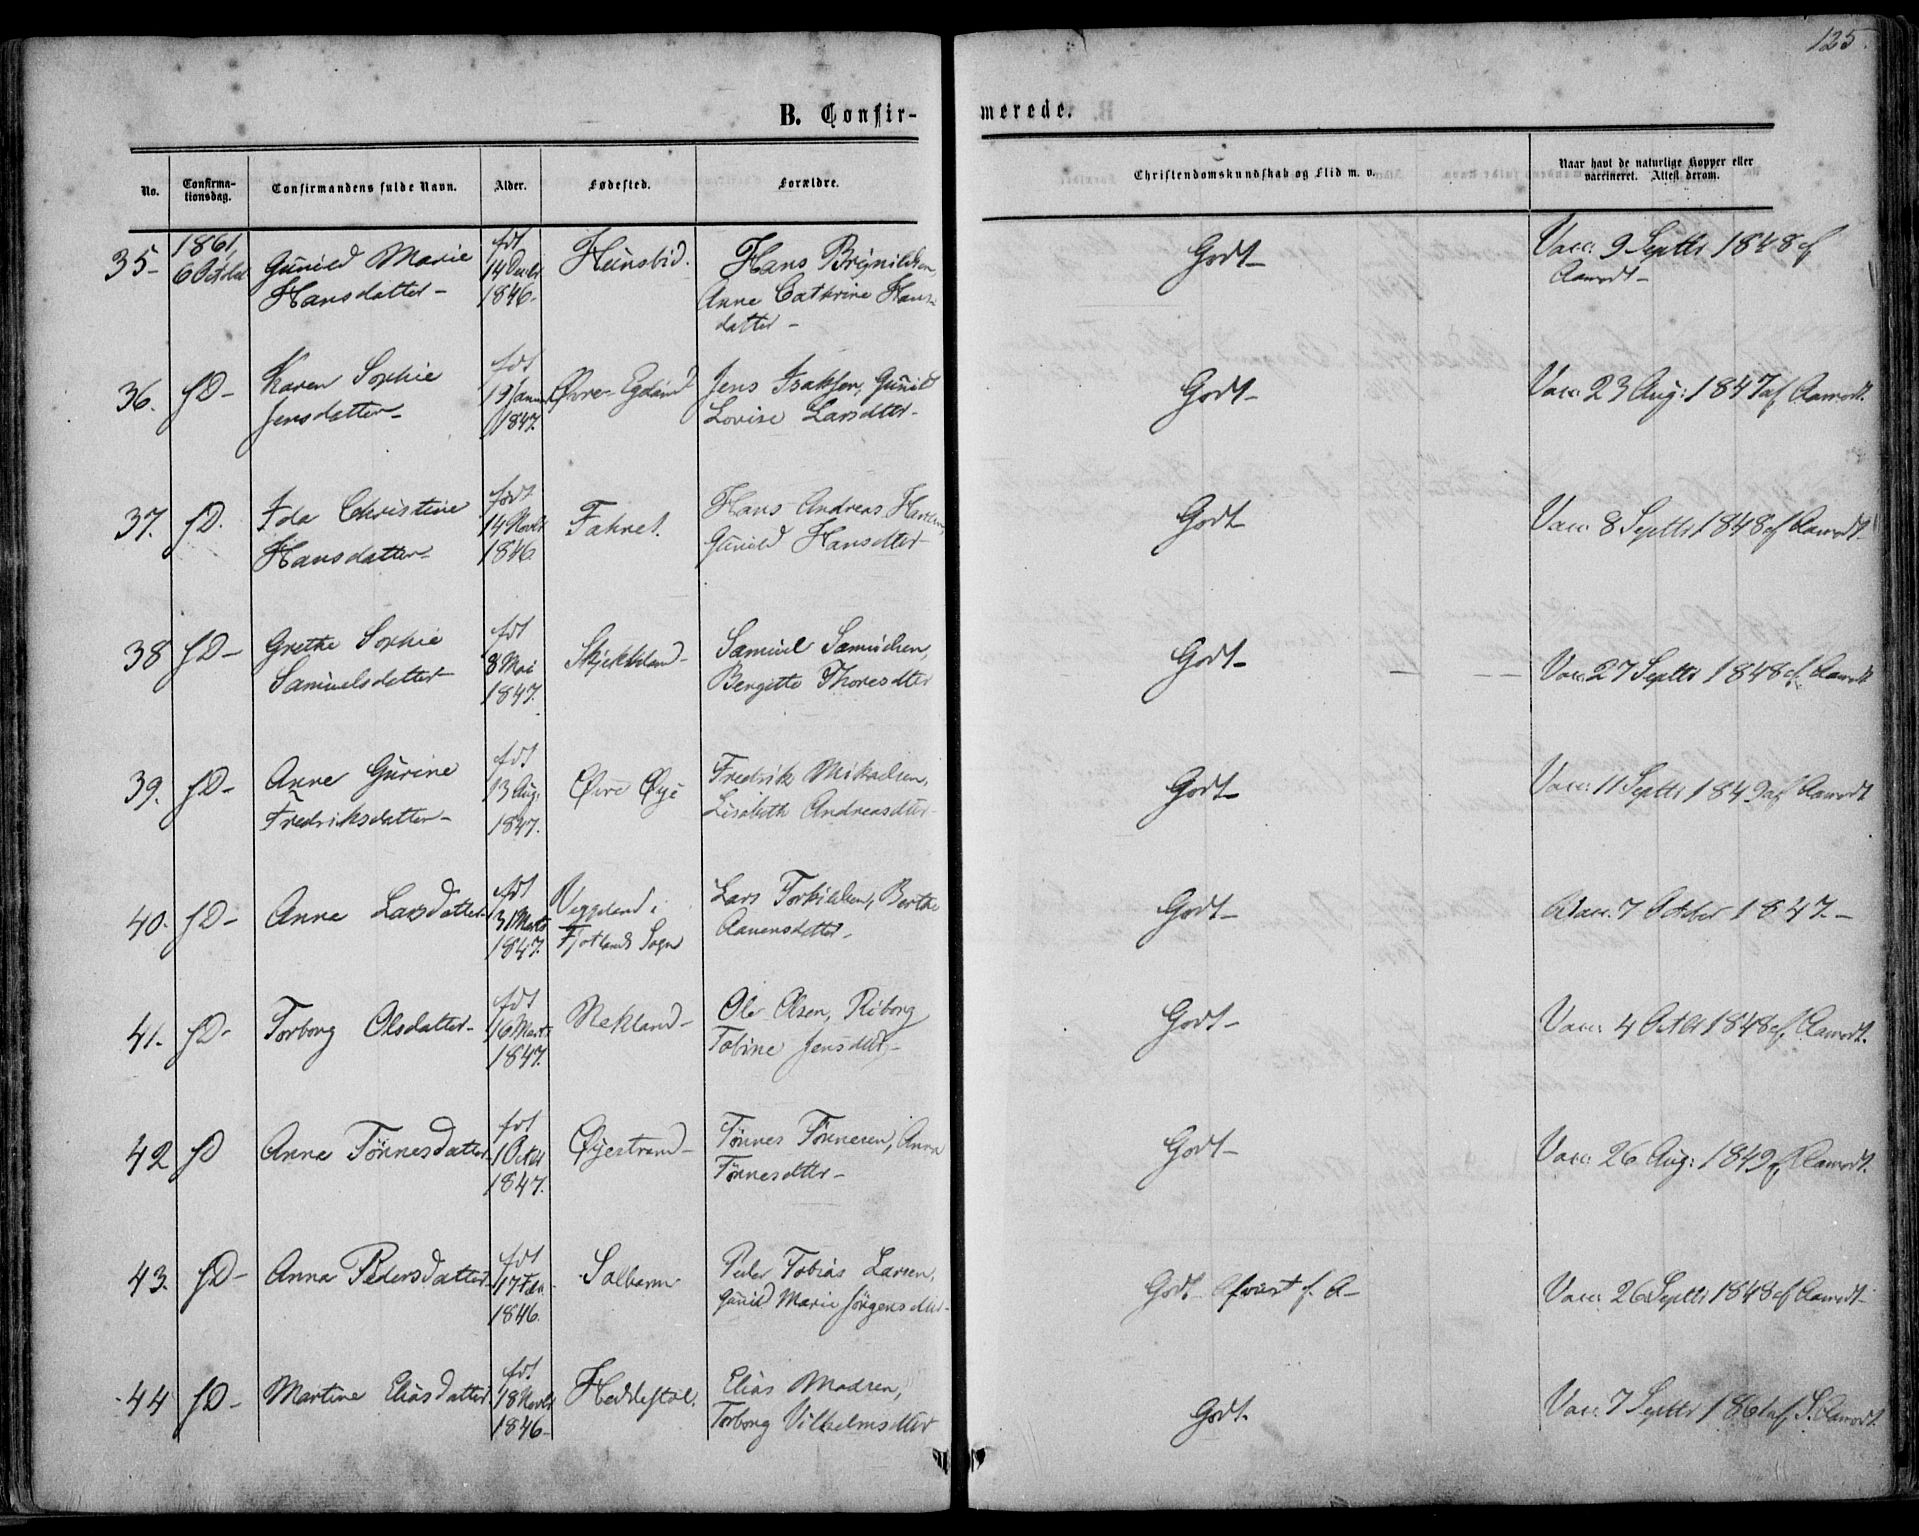 125.
B. Confir-
merede.
No.
Confirma-
tionsdag.
Confirmandens fulde Navn.
Alder.
Fødested.
Forældre.
Christendomskundskab og Flid m. v.
Naar havt de naturlige Kopper eller
vaccineret. Attest derom.
35- 1861, Gunild Marie fdt Hunsbid. Hans Brynildsen, Godt- Vacc: 9 Septbr 1848 af
6 October Hansdatter- 14 Decbr Anne Cathrine Hans- Aamodt-
1846- datter-
36. fD- Karen Sophie fdt Øvre Egdand Jens Isaksen, Gunild Godt- Vacc: 23 Aug: 1847 af Aamodt.
Jensdatter- 19 Januar Lovise Larsdtter-
1847.
37. fD. Ida Christine født Fahret. Hans Andreas Godt Vacc: 8 Septbr 1848 af Aamodt-
Hansdatter- 14 Novbr Gunild Hansdtter
1846
38 fD- Grethe Sophie fdt Samuel Samuelsen, Godt- Vacc: 27 Septbr 1848 af Aamodt
Samuelsdatter- 8 Mai Bergitte Thoresdtter
1847.
39. fD- Anne Gurine fdt Øvre Øye Fredrik Mikaelsen, Godt- Vacc: 11 Septbr 1849 af Aamodt
Fredriksdatter- 13 Aug: Lisabeth Andreasdtter
1847.
40. fD- Anne Larsdatter fdt Veggeland i Lars Torkildsen, Berthe Godt- Vacc: 7 October 1847.-
31 Marts Fjotlands Sogn Aanensdatter-
1847.
41. fD- Torborg Olsdatter- fdt Rekland- Ole Olsen, Riborg Godt- Vacc: 4 Octbr 1848 af Aamodt.
16 Marts Tobine Jensdtt,-
1847.
42 fD Anna Tønnesdatter fdt Øyestrand- Tønnes Tønnesen, Anna Godt- Vacc: 26 Aug: 1849 af Aamodt.
1 Octbr Tønnesdtter-
1847.
43. fD- Anna Pedersdatter fdt Solberm Peder Tobias Larsen, Godt- Afviist f. A- Vacc: 26 Septbr 1848 af Aamodt-
17 Gunild Marie Jörgensdtter-
1846.
44 fD- Martine Eliasdatter fdt Heddestøl. Elias Madsen, Godt. Vacc: 7 Septbr 1861 af S. Aamodt.
18 Novbr Torborg Vilhelmsdtter
1846-